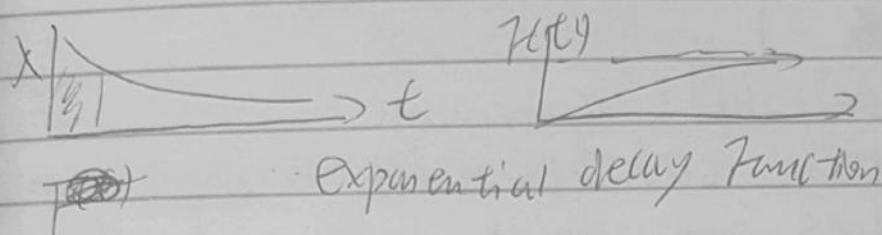 X t F(t)
exponential decay Function